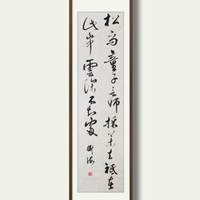 松下問童子言師採藥去祗在
此山中雲深不知處